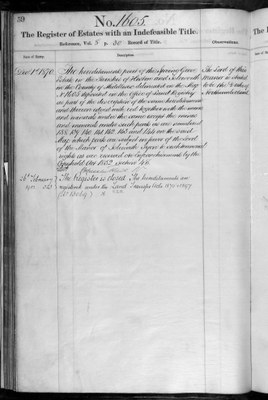 30
No. 1605.
The Register of Estates with an Indefeasible Title.
Reference, Vol. 8 p. 30 Record of Title.
Date of Entry.
Description.
Observations.
1870.
The hereditaments part of the Spring Grove
Estate in the Parishes of Heston and Isleworth
in the County of Middlesex delineated on the Map
No. 1605 deposited in the Office of Land Registry
as part of the description of the same hereditaments
and thereon edged with red together with the mines
and minerals under the same except the mines
and minerals under such parts as are numbered
and 144 on the said
Map which parts are subject as part of the land
of the Manor of Isleworth Syon to such manorial
rights as are reserved on Enfranchisement by the
Copyhold Act 1852 section 48.
The Lord of this
Manor is stated
to be the Duke of
Northumberland
February
The Register is closed. The hereditaments are
registered under the Land Transfer Acts 1875 & 1897